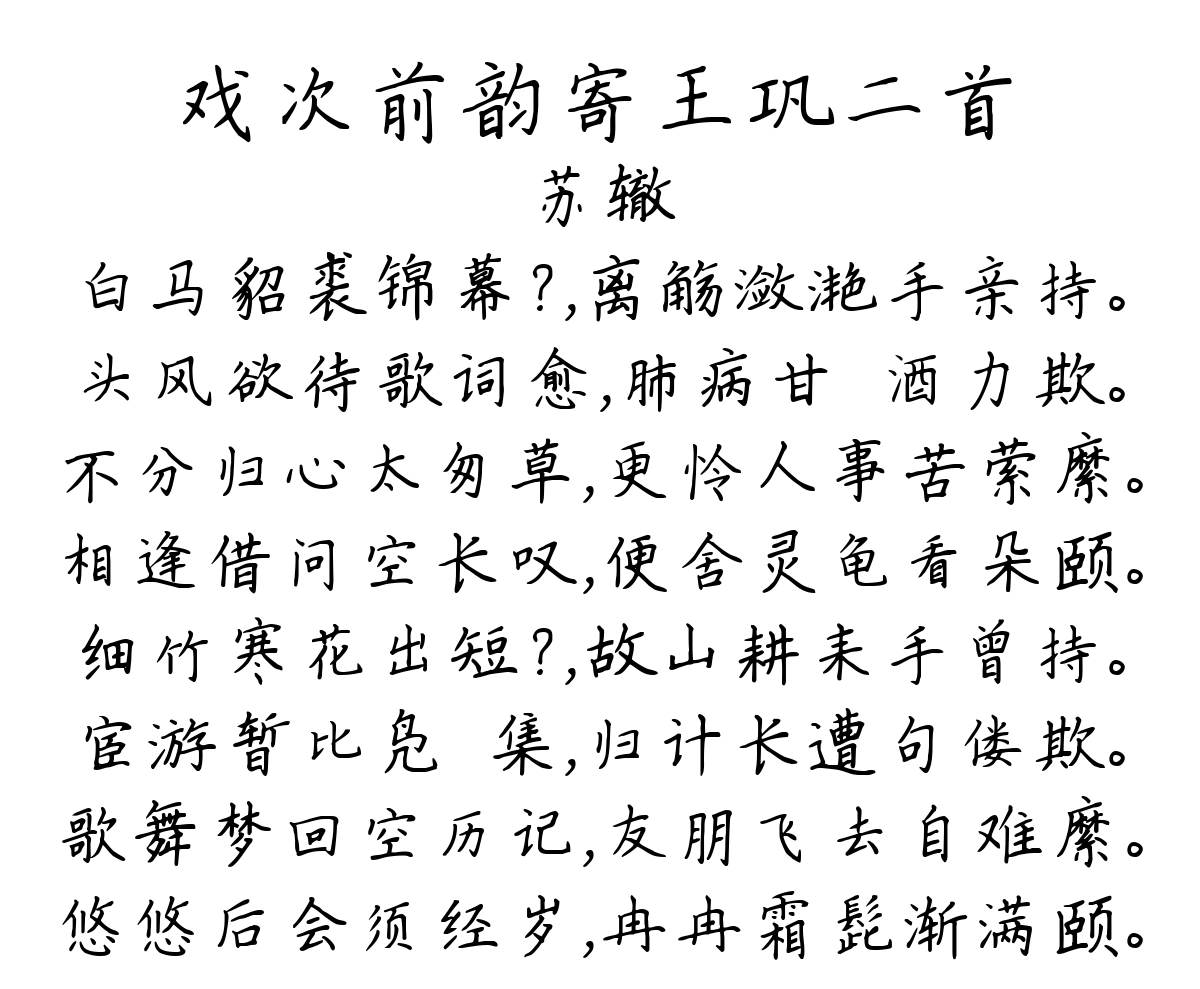 戏次前韵寄王巩二首
苏辙
白马貂裘锦幕?,离觞潋滟手亲持。
头风欲待歌词愈,肺病甘 酒力欺。
不分归心太匆草,更怜人事苦萦縻。
相逢借问空长叹,便舍灵龟看朵颐。
细竹寒花出短?,故山耕耒手曾持。
宦游暂比凫 集,归计长遭句偻欺。
歌舞梦回空历记,友朋飞去自难縻。
悠悠后会须经岁,冉冉霜髭渐满颐。